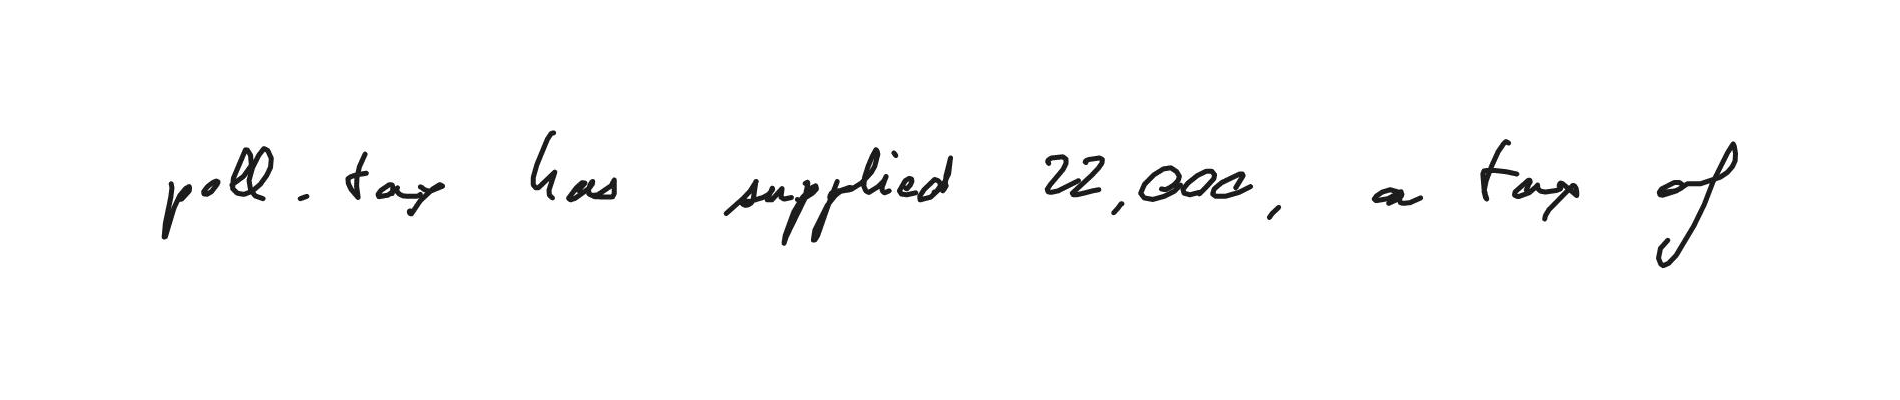 poll-tax has supplied 22,000, a tax of